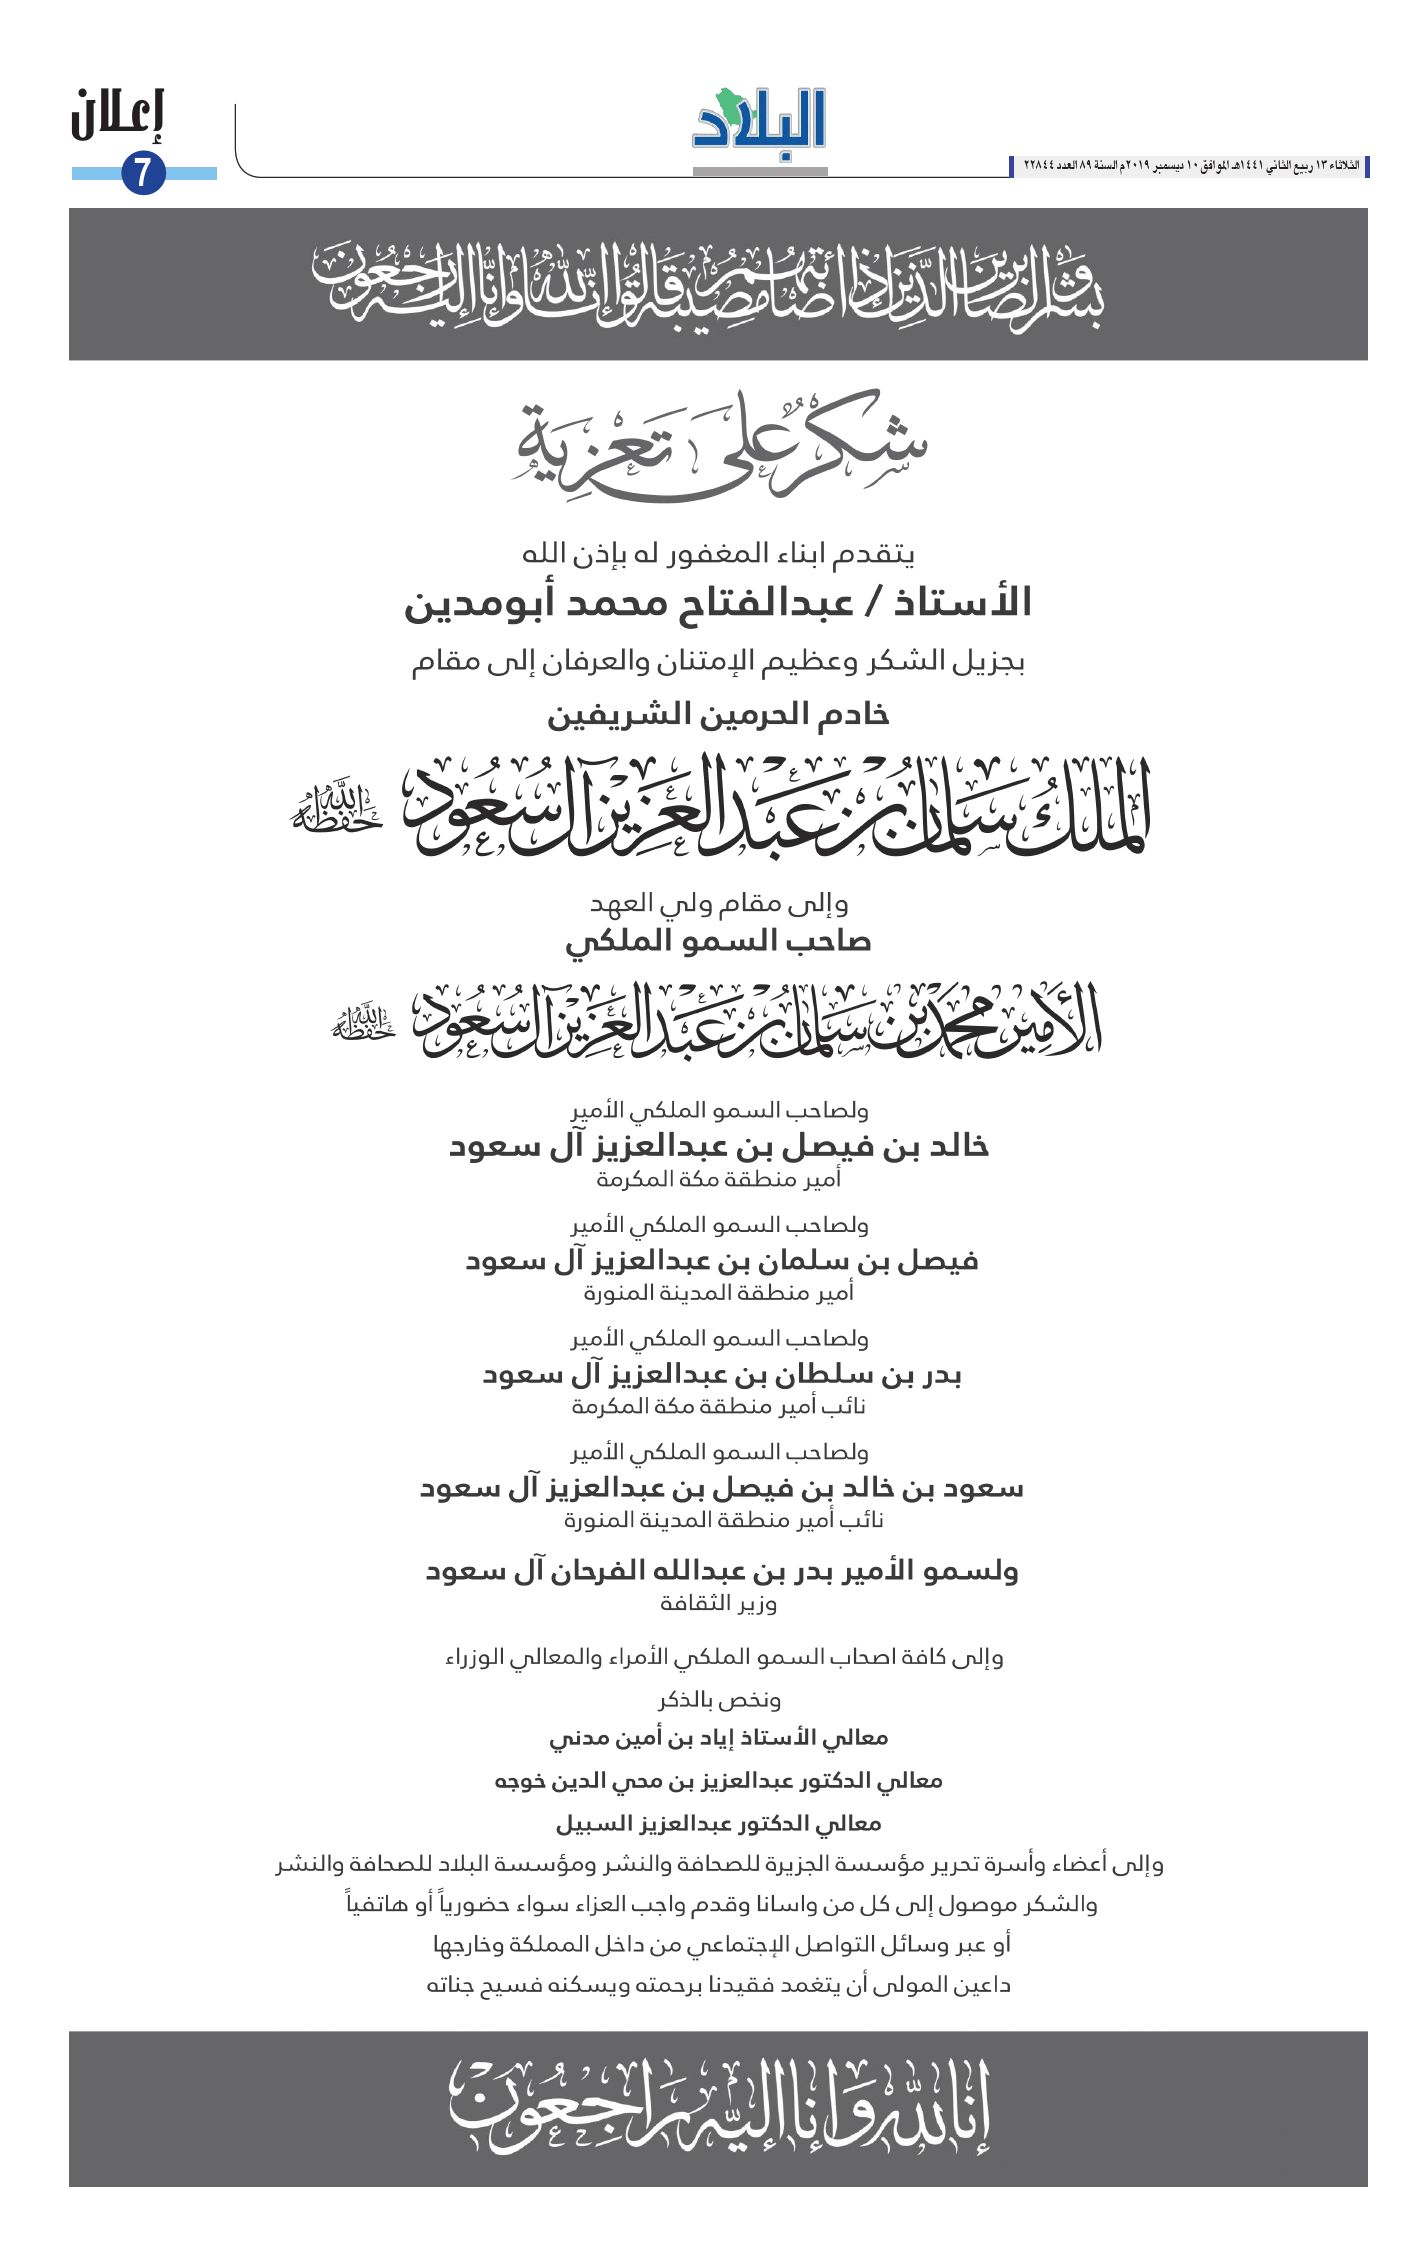 الثلاثاء ١٣ ربيع الثاني ١٤٤١هـ الموافق ١٠ ديسمبر ٢٠١٩م السنة ٨٩ العدد ٢٢٨٤٤
البلاد
إعلان
7
وبشر الصابرين الذين إذا أصابتهم مصيبة قالوا إنا لله وإنا إليه راجعون
شكرٌ على تعزية
يتقدم ابناء المغفور له بإذن الله
الأستاذ / عبدالفتاح محمد أبومدين
بجزيل الشكر وعظيم الإمتنان والعرفان إلى مقام
خادم الحرمين الشريفين
الملك سلمان بن عبد العزيز آل سعود حفظه الله
وإلى مقام ولي العهد
صاحب السمو الملكي
الأمير محمد بن سلمان بن عبد العزيز آل سعود حفظه الله
ولصاحب السمو الملكي الأمير
خالد بن فيصل بن عبدالعزيز آل سعود
أمير منطقة مكة المكرمة
ولصاحب السمو الملكي الأمير
فيصل بن سلمان بن عبدالعزيز آل سعود
أمير منطقة المدينة المنورة
ولصاحب السمو الملكي الأمير
بدر بن سلطان بن عبدالعزيز آل سعود
نائب أمير منطقة مكة المكرمة
ولصاحب السمو الملكي الأمير
سعود بن خالد بن فيصل بن عبدالعزيز آل سعود
نائب أمير منطقة المدينة المنورة
ولسمو الأمير بدر بن عبدالله الفرحان آل سعود
وزير الثقافة
وإلى كافة اصحاب السمو الملكي الأمراء والمعالي الوزراء
ونخص بالذكر
معالي الأستاذ إياد بن أمين مدني
معالي الدكتور عبدالعزيز بن محي الدين خوجه
معالي الدكتور عبدالعزيز السبيل
وإلى أعضاء وأسرة تحرير مؤسسة الجزيرة للصحافة والنشر ومؤسسة البلاد للصحافة والنشر
والشكر موصول إلى كل من واسانا وقدم واجب العزاء سواء حضورياً أو هاتفياً
أو عبر وسائل التواصل الإجتماعي من داخل المملكة وخارجها
داعين المولى أن يتغمد فقيدنا برحمته ويسكنه فسيح جناته
إنا لله وإنا إليه راجعون